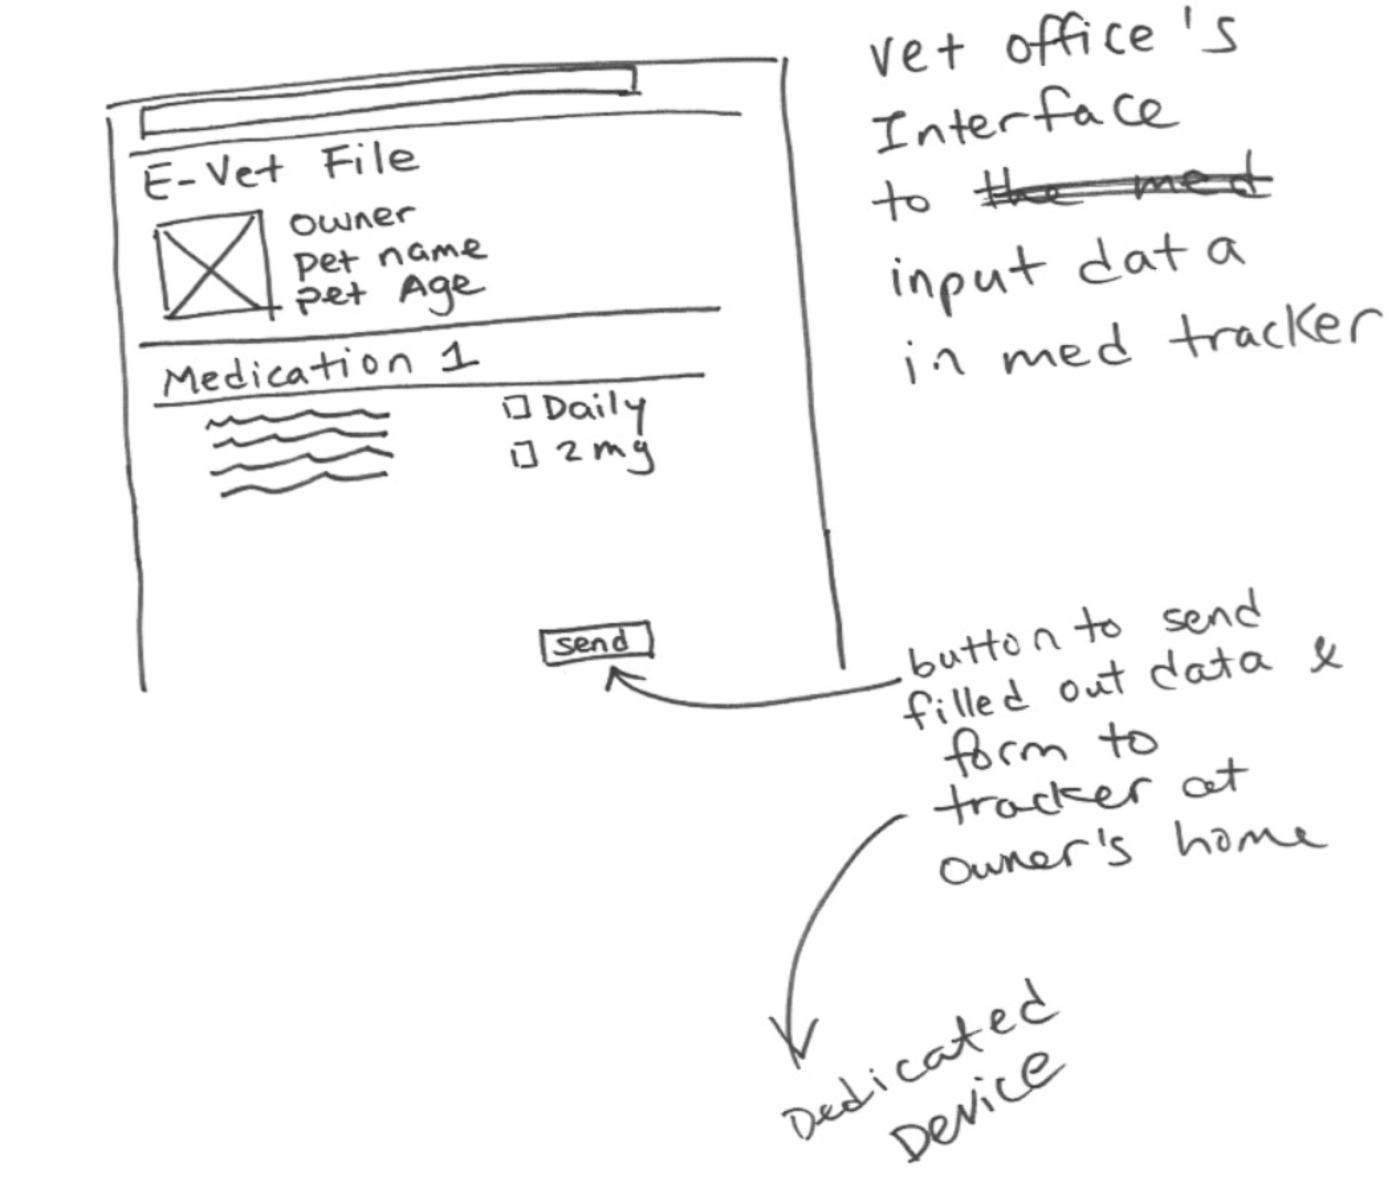 E-Vet File
owner
pet name
pet Age
Medication 1
Daily
2mg
send
vet office's
Interface
to the med
input data
in med tracker
button to send
filled out data &
form to
tracker at
owner's home
Dedicated
Device